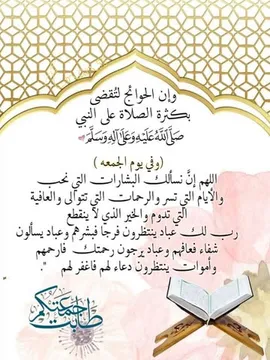 وإن الحوائج لتُقضى
بكثرة الصلاة على النبي
صَلَّى اللهُ عَلَيْهِ وَعَلَى آلِهِ وَسَلَّمَ
( وفي يوم الجمعه )
اللهم إنَّ نسألك البشارات التي نحب
والأيام التي تسر والرحمات التي تتوالى والعافية
التي تدوم والخير الذي لا ينقطع
رب لك عباد ينتظرون فرجا فبشرهم وعباد يسألون
شفاء فعافهم وعباد يرجون رحمتك فارحمهم
وأموات ينتظرون دعاء لهم فاغفر لهم ".
طابت جمعتكم